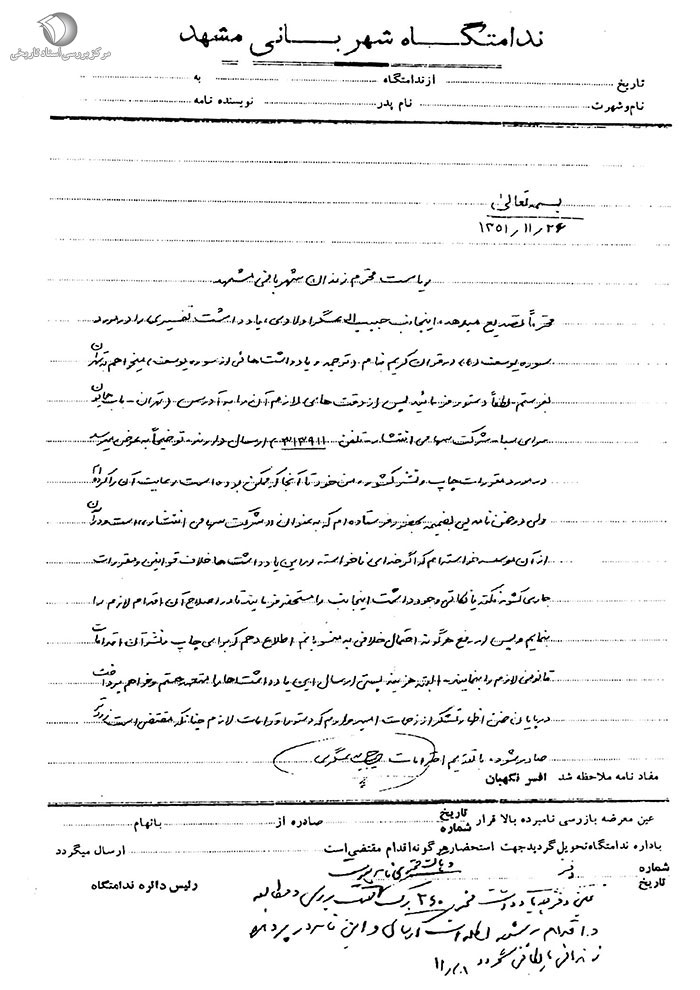 مرکز بررسی اسناد تاریخی
ندامتگاه شهربانی مشهد
تاریخ از ندامتگاه به
نام و شهرت نام پدر نویسنده نامه
بسمه تعالی
۱۳۵۱٫۱۱٫۲۶
ریاست محترم زندان شهربانی مشهد
محترماً تصدیع میدهد، اینجانب حبیب اله عسگراولادی، یادداشت تفسیری را در مورد
سوره یوسف (ع) در قرآن کریم بنام (ترجمه و یادداشت هائی از سوره یوسف) میخواهم به تهران
بفرستم. لطفاً دستور فرمائید پس از دقت هایی لازم آن را به آدرس (تهران - باب همایون
سرای سپا - شرکت سهامی انتشار - تلفن ۳۱۳۹۱۱) ارسال دارند. توضیحاً به عرض میرسد
در مورد مقررات چاپ و نشر کشور، من خود تا آنجا که ممکن بوده است رعایت آن را کرده ام
ولی در ضمن نامه یی بضمیمه بحضور فرستاده ام که به عنوان «شرکت سهامی انتشار» است و در آن
از آن موسسه خواسته ام که اگر خدای ناخواسته در این یادداشت ها خلاف قوانین و مقررات
جاری کشور نکته یا نکاتی وجود داشت اینجانب را مستحضر فرمایند تا در اصلاح آن اقدام لازم را
بنمایم و پس از رفع هرگونه احتمال خلافی به ایشان اطلاع دهم که برای چاپ و نشر آن اقدامات
قانونی لازم را بنمایند. البته هزینه پستی ارسال این یادداشت ها را متعهد هستم و خواهم پرداخت
در پایان ضمن اظهار تشکر از زحمات امیدوارم که دستور اقدامات لازم چنانکه مقتضی است زودتر
صادر شود، با تقدیم احترامات حبیب اله عسگراولادی
مفاد نامه ملاحظه شد افسر نگهبان
عین معرضه بازرسی نامبرده بالا قرار تاریخ شماره صادره از باتهام
باداره ندامتگاه تحویل گردید جهت استحضار هر گونه اقدام مقتضی است ارسال میگردد
شماره
تاریخ رئیس دائره ندامتگاه
عین دفترچه یادداشت ۲۶۰ برگ جهت بررسی و مطالعه
و اقدام به اطلاعات ارسال و این نامه در پرونده
زندانی بایگانی شود